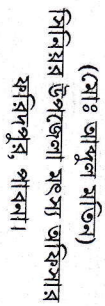 (মোঃ আব্দুল মতিন)
সিনিয়র উপজেলা মৎস্য অফিসার
ফরিদপুর, পাবনা।